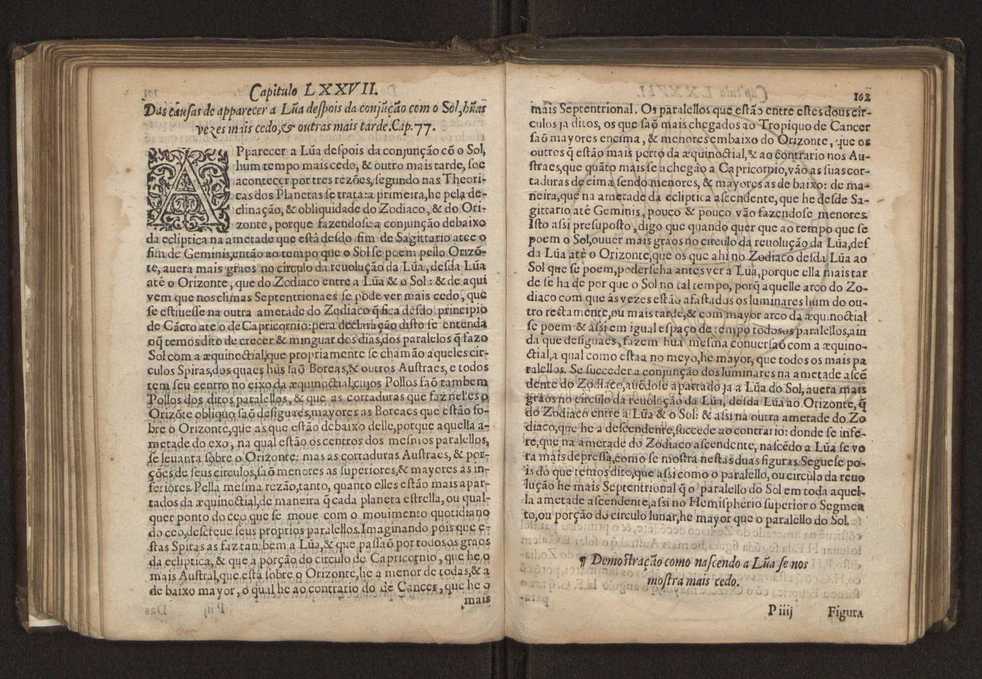 Capitulo LXXVII.
Das causas de apparecer a Lũa despois da conjũção com o Sol, hũas
vezes mais cedo, & outras mais tarde. Cap. 77.
APparecer a Lũa despois da conjunção cõ o Sol,
hum tempo mais cedo, & outro mais tarde, soe
acontecer por tres rezões, segundo nas Theori-
cas dos Planetas se trata: a primeira, he pela de-
clinação, & obliquidade do Zodiaco, & do Ori-
zonte, porque fazendose a conjunção debaixo
da ecliptica na ametade que está desdo fim de Sagittario atee o
fim de Geminis, então ao tempo que o Sol se poem pello Orizõ-
te, auera mais graos no circulo da reuolução da Lũa, desda Lũa
até o Orizonte, que do Zodiaco entre a Lũa & o Sol: & de aqui
vem que nos climas Septentrionaes se pòde ver mais cedo, que
se estiuesse na outra ametade do Zodiaco q̃ fica desdo principio
de Cãcro até o de Capricornio: pera declaração disto se entenda
oq̃ temos dito de crecer & minguar dos dias, dos paralelos q̃ fazo
Sol com a æquinoctial, que propriamente se chamão aqueles cir-
culos Spiras, dos quaes hũs saõ Boreas, & outros Austraes, e todos
tem seu centro no eixo da æquinoctial, cujos Pollos saõ tambem
Pollos dos ditos parallelos, & que as cortaduras que faz neles o
Orizõte obliquo, saõ desiguaes, mayores as Boreaes que estão so-
bre o Orizonte, que as que estão debaixo delle, porque aquella a-
metade do exo, na qual estão os centros dos mesmos parallelos,
se leuanta sobre o Orizonte: mas as cortaduras Austraes, & por-
ções de seus circulos, saõ menores as superiores, & mayores as in-
feriores. Pella mesma rezão, tanto, quanto elles estão mais apar-
tados da æquinoctial, de maneira q̃ cada planeta estrella, ou qual-
quer ponto do ceo que se moue com o mouimento quotidiano
do ceo, descreue seus proprios parallelos. Imaginando pois que e-
stas Spiras as faz tambem a Lũa, & que passaõ por todos os graos
da ecliptica, & que a porção do circulo de Capricornio, que he o
mais Austral, que està sobre o Orizonte, he a menor de todas, & a
de baixo mayor, o qual he ao contrario do de Cancer, que he o
mais
102
mais Septentrional. Os parallelos que estaõ entre estes dous cir-
culos ja ditos, os que saõ mais chegados ao Tropiquo de Cancer
saõ mayores encima, & menores embaixo do Orizonte, que os
outros q̃ estão mais perto da æquinoctial, & ao contrario nos Au-
straes, que quãto mais se achegão a Capricornio, vão as suas cor-
taduras de cima sendo menores, & mayores as de baixo: de ma-
neira, que na ametade da ecliptica ascendente, que he desde Sa-
gittario até Geminis, pouco & pouco vão fazendose menores.
Isto assi presuposto, digo que quando quer que ao tempo que se
poem o Sol, ouuer mais graos no circulo da reuolução da Lũa, des
da Lũa até o Orizonte, que os que ahi no Zodiaco desda Lũa ao
Sol que se poem, poderseha antes ver a Lũa, porque ella mais tar
de se ha de por que o Sol no tal tempo, porq̃ aquelle arco do Zo-
diaco com que às vezes estão afastados os luminares hum do ou-
tro rectamente, ou mais tarde, & com mayor arco da æquinoctial
se poem & assi em igual espaço de tempo todos os parallelos, ain
da que desiguaes, fazem hũa mesma conuersaõ com a æquino-
ctial, a qual como està no meyo, he mayor, que todos os mais pa
rallelos. Se succeder a conjunção dos luminares na ametade ascẽ
dente do Zodiaco, auẽdose apartado ja a Lũa do Sol, auera mais
graos no circulo da reuolução da Lũa, desda Lũa ao Orizonte, q̃
do Zodiaco entre a Lũa & o Sol: & assi na outra ametade do Zo
diaco, que he a descendente, succede ao contrario: donde se infe-
re, que na ametade do Zodiaco ascendente, nascẽdo a Lũa se vo
ra mais depressa, como se mostra nestas duas figuras. Seguese po-
is do que temos dito, que assi como o paralello, ou circulo da reuo
lução he mais Septentrional q̃ o parallello do Sol em toda aquel-
la ametade ascendente, assi no Hemispherio superior o Segmen
to, ou porção do circulo lunar, he mayor que o paralello do Sol.
¶ Demostração como nascendo a Lũa se nos
mostra mais cedo.
P iiij Figura